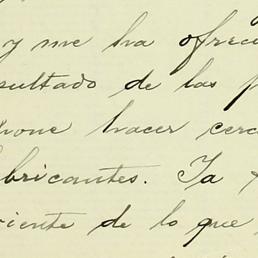 y me ha ofreci
sultado de las p
pone hacer cerc
bricantes. Ya
viente de lo que